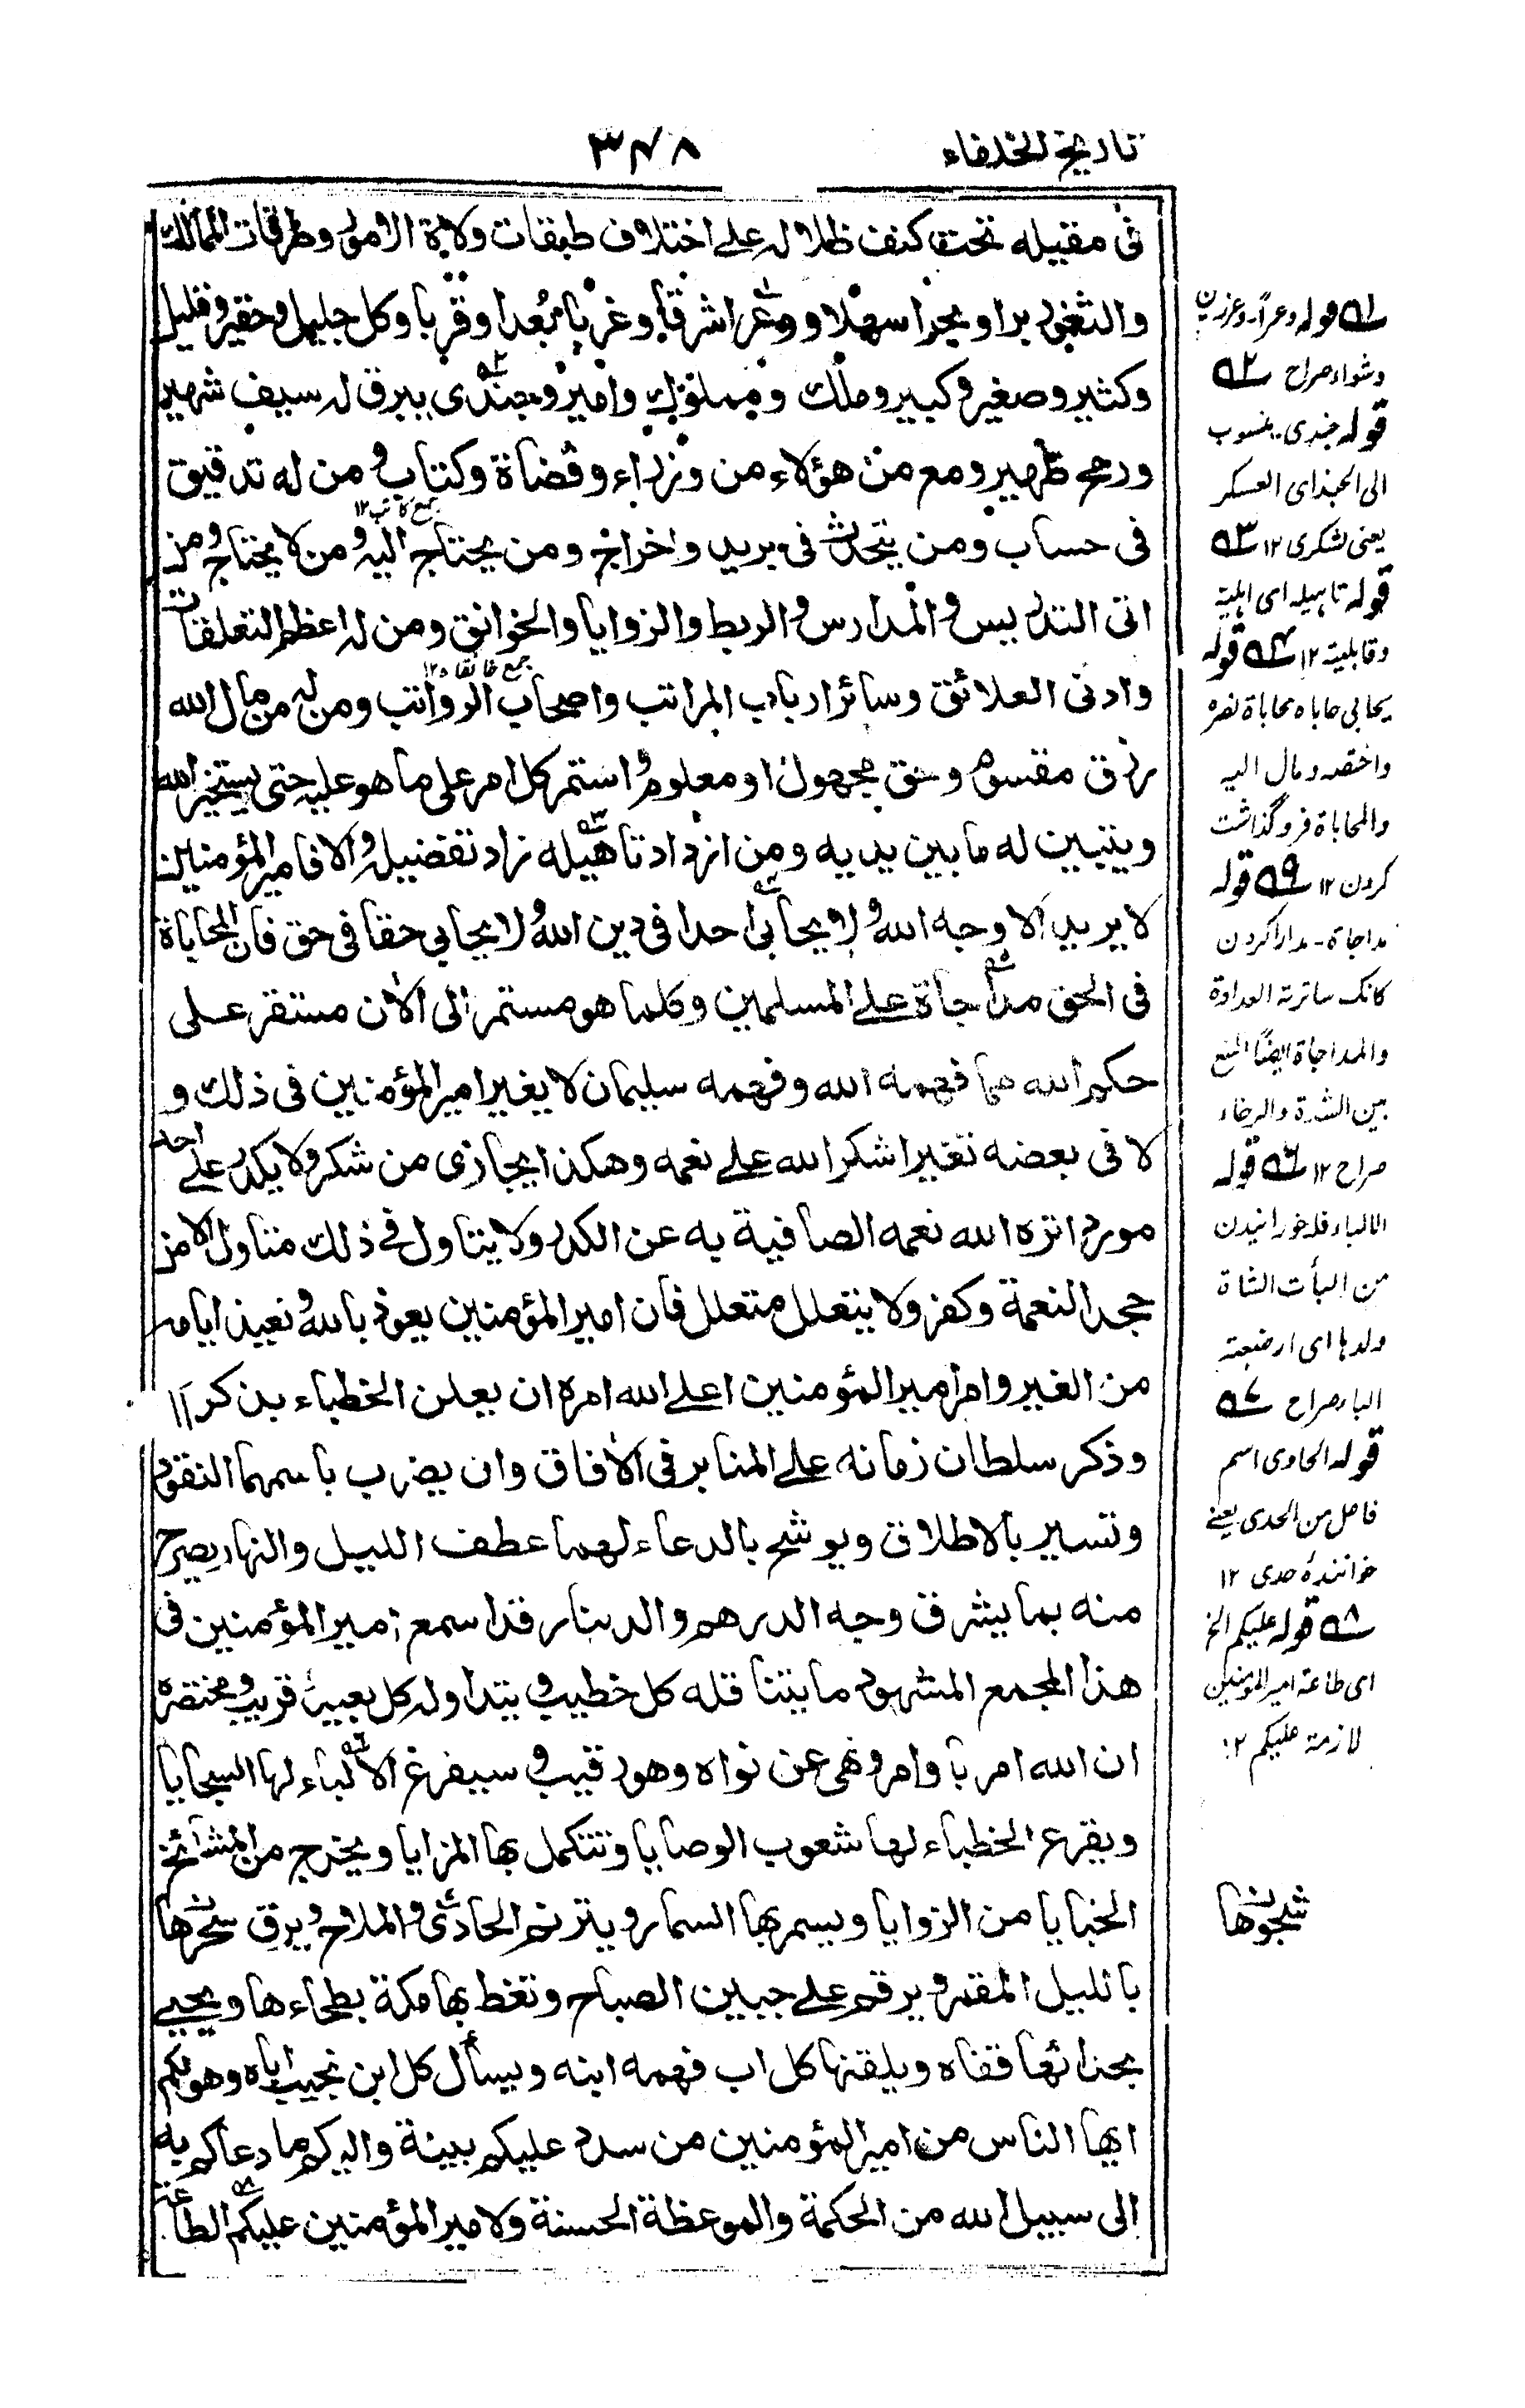 تاريخ الخلفاء
٣٤٨
فى مقيله تحت كنف ظلاله على اختلاف طبقات ولاة الامور وطرقات الممالك
والثغور برا وبحرا سهلا ووعرا شرقا وغربا بعدا وقربا وكل جليل وحقير وقليل
وكثير وصغير وكبير وملك ومملوك وامير وجندى يبرق له سيف شهير
ورمح ظهير ومع من هؤلاء من وزراء وقضاة وكتاب ومن له تدقيق
جمع كاتب ١٢
فى حساب ومن يتحدث فى بريد واخراج ومن يحتاج اليه ومن لا يحتاج ومن
اتى التدريس والمدارس والربط والزوايا والخوانق ومن له اعظم التعلقات
جمع خانقاه ١٢
وادنى العلائق وسائر ارباب المراتب واصحاب الرواتب ومن له من مال الله
رزق مقسوم وحق مجهول او معلوم واستمر كل امر على ما هو عليه حتى يستخير الله
ويتبين له ما بين يديه ومن ازداد تاهيله زاد تفضيله والا فامير المؤمنين
لا يريد الا وجه الله ولا يحابى احدا فى دين الله ولا يحابى حقا فى حق فان المحاباة
فى الحق مداجاة على المسلمين وكلما هو مستمر الى الآن مستقر على
حكم الله مما فهمه الله وفهمه سليمان لا يغير امير المؤمنين فى ذلك و
لا فى بعضه تغيرا شكرا لله على نعمه وهكذا يجازى من شكر ولا يكدر على احد
موردا نزه الله نعمه الصافية به عن الكدر ولا يتاول فى ذلك متاول الا من
جحد النعمة وكفر ولا يتعلل متعلل فان امير المؤمنين يعوذ بالله ونعيذ ايامه
من الغير وامر امير المؤمنين اعلى الله امره ان يعلن الخطباء بذكره
وذكر سلطان زمانه على المنابر فى الآفاق وان يضرب باسمهما النقود
وتسير بالاطلاق ويوشح بالدعاء لهما عطف الليل والنهار يصرح
منه بما يشرق وجه الدرهم والدينار قد اسمع امير المؤمنين فى
هذا المجمع المشهود ما يتناقله كل خطيب ويتداوله كل بعيد وقريب ومختصره
ان الله امر باوامر ونهى عن نواه وهو رقيب وسيفرغ الالباء لها السجايا
ويقرع الخطباء لها شعوب الوصايا وتتكمل بها المزايا ويخرج من المشائخ
الخبايا من الزوايا ويسمر بها السمار ويترنم الحادى والملاح ويرق سحرها
بالليل المقمر ويرقم على جبين الصباح وتغط بها مكة بطحاءها ويحيى
بحدائها قفاه ويلقنها كل اب فهمه ابنه ويسأل كل ابن نجيب اباه وهو لكم
ايها الناس من امير المؤمنين من سدد عليكم بينة واليكم ما دعاكم به
الى سبيل الله من الحكمة والموعظة الحسنة ولامير المؤمنين عليكم الطاعة
١ قوله وعراً - وعر زمين
دشوار صراح ٢
قوله جندى - منسوب
الى الجند اى العسكر
يعنى لشكرى ١٢ ٣
قوله تاهيله اى اهلية
وقابلية ١٢ ٤ قوله
يحابى حاباه محاباة نصره
واختصه ومال اليه
والمحاباة فروگذاشت
كردن ١٢ ٥ قوله
مداجاة - مدارا كردن
كانك ساترته العداوة
والمداجاة ايضًا المنع
بين الشدة والرخاء
صراح ١٢ ٦ قوله
الالباء فله خورانيدن
من البأت الشاة
ولدها اى ارضعته
اللبا صراح ٧
قوله الحادى اسم
فاعل من الحدى يعنى
خوانندۀ حدى ١٢
٨ قوله عليكم الخ
اى طاعة امير المؤمنين
لازمة عليكم ١٢
شجونها